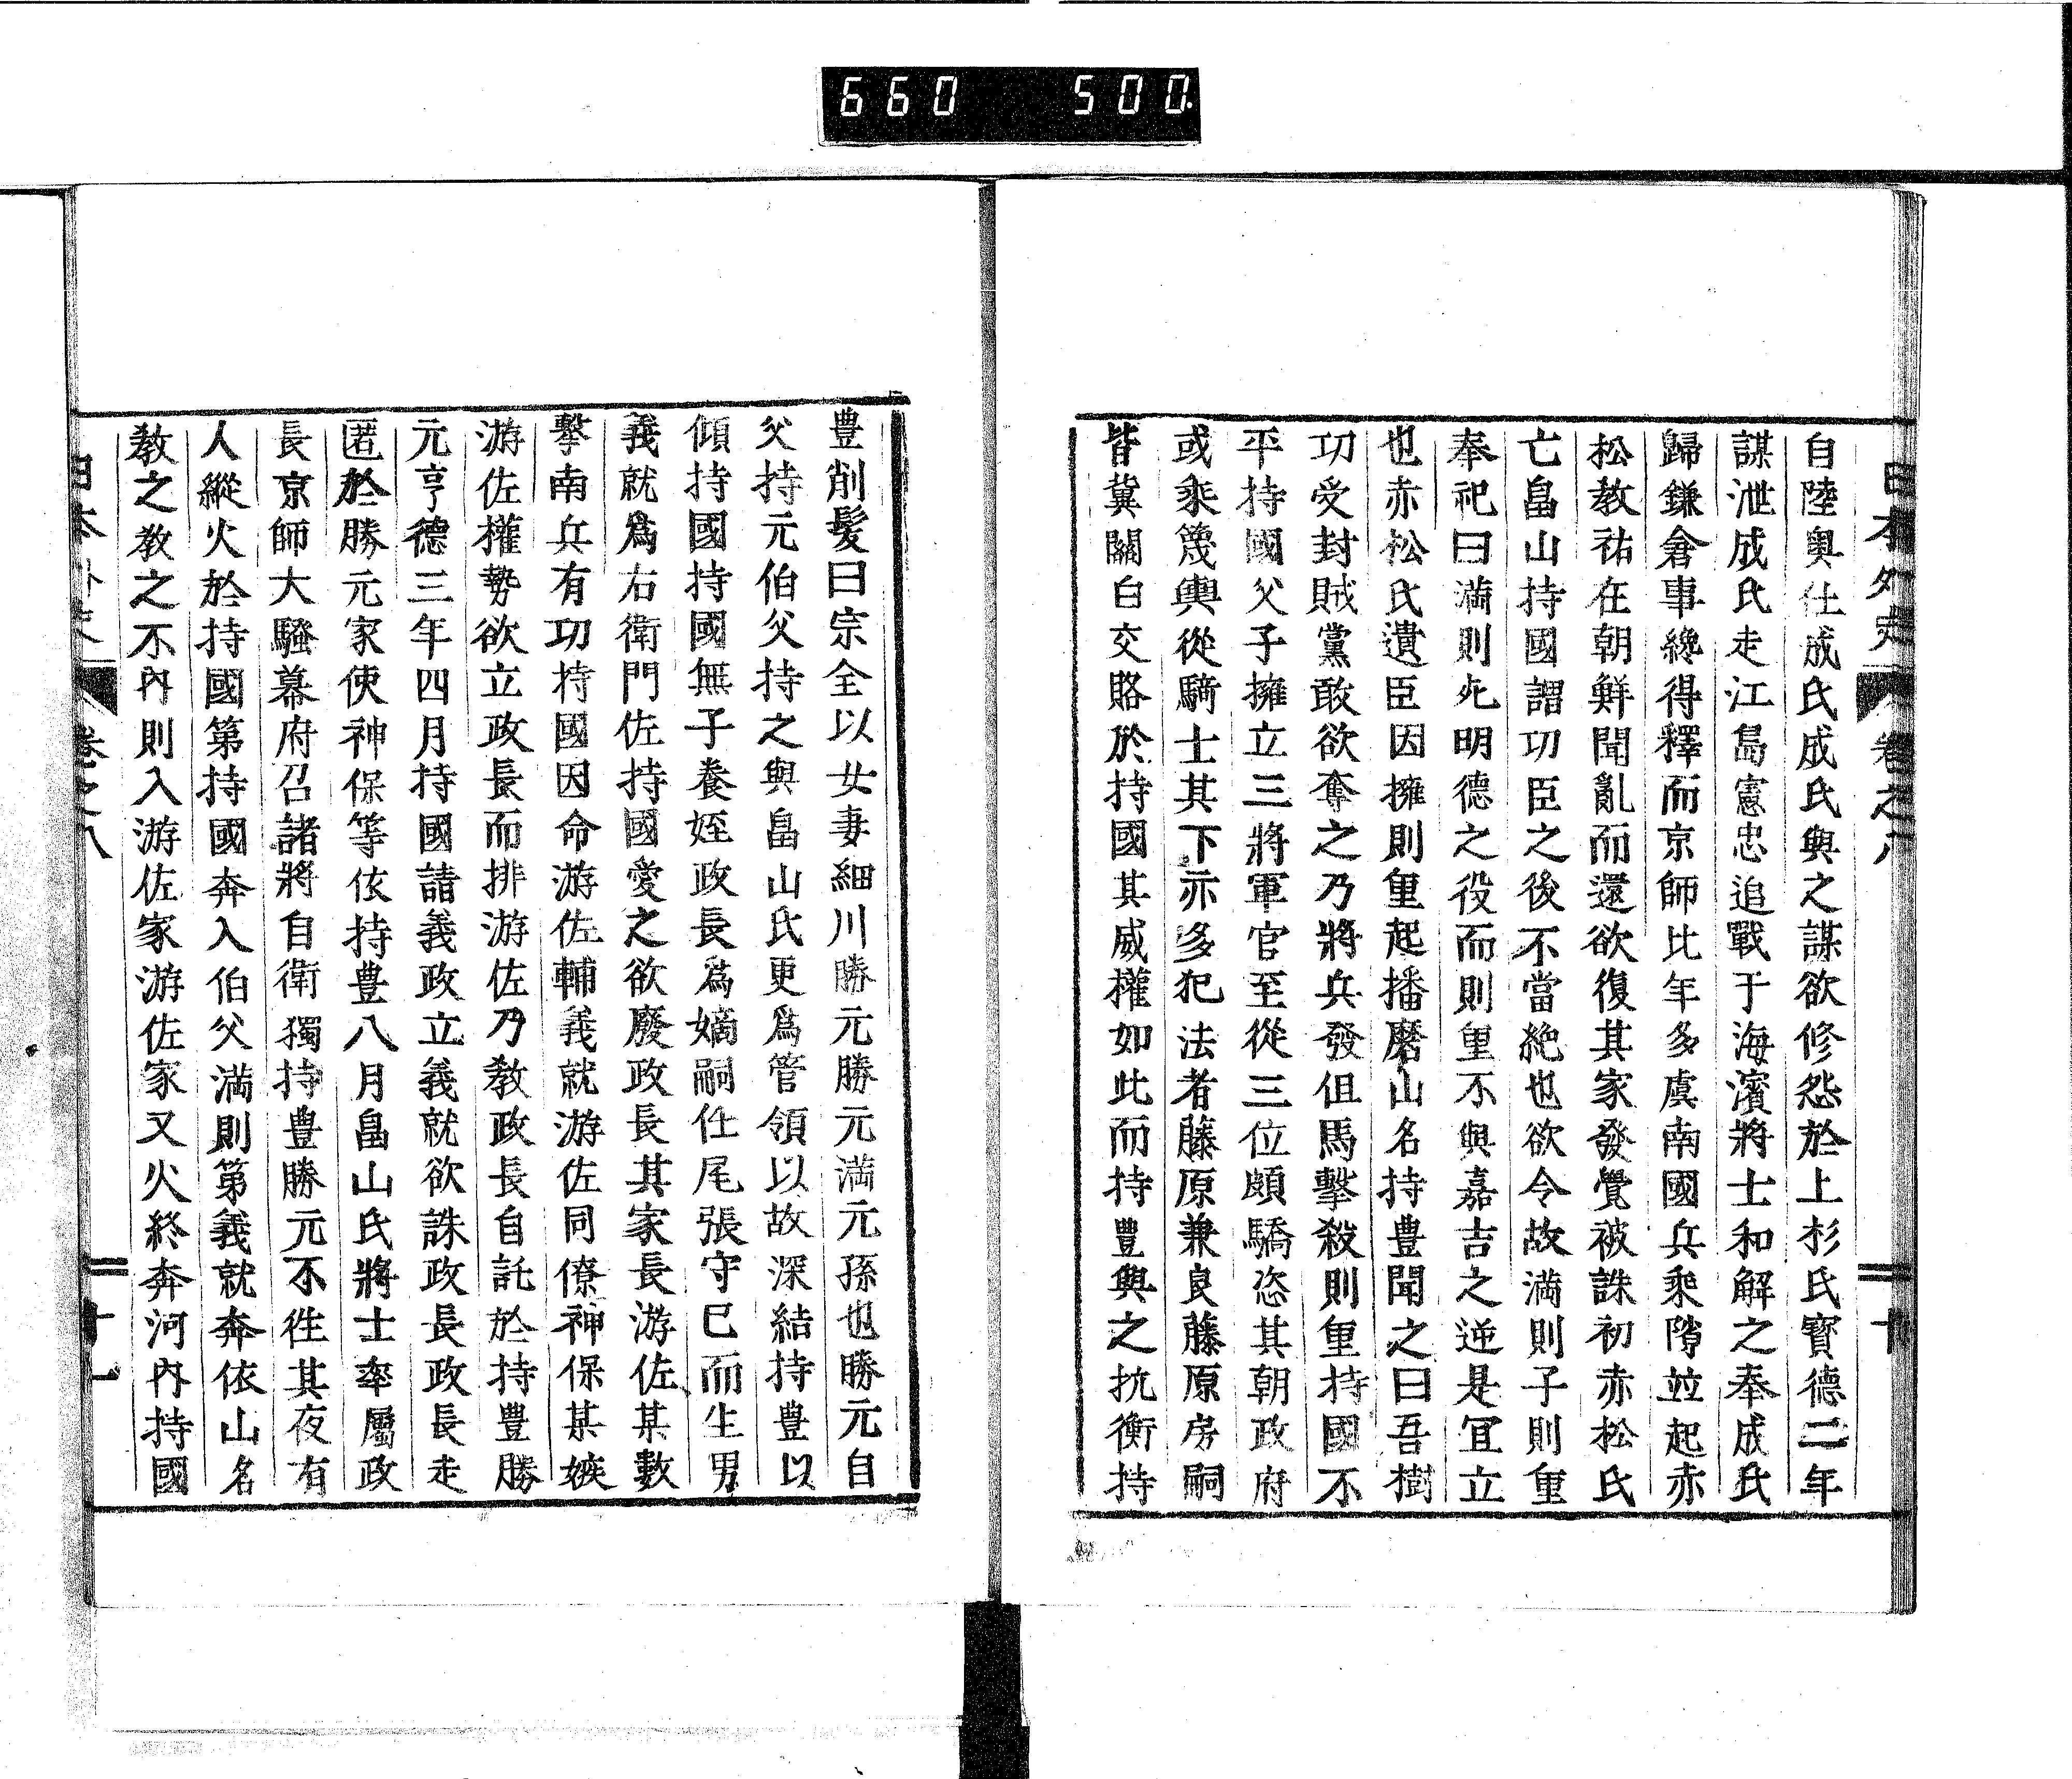 660 500.
日本外史 卷之八 十
自陸奥仕成氏成氏與之謀欲修怨於上杉氏寶德二年
謀泄成氏走江島憲忠追戰于海濱將士和解之奉成氏
歸鎌倉事纔得釋而京師比年多虞南國兵乘隙竝起赤
松教祐在朝鮮聞亂而還欲復其家發覺被誅初赤松氏
亡畠山持國謂功臣之後不當絶也欲令故満則子則重
奉祀曰満則死明德之役而則重不與嘉吉之逆是宜立
也赤松氏遺臣因擁則重起播磨山名持豊聞之曰吾樹
功受封賊黨敢欲奪之乃將兵發但馬擊殺則重持國不
平持國父子擁立三將軍官至從三位頗驕恣其朝政府
或乘篾輿從騎士其下亦多犯法者藤原兼良藤原房嗣
皆冀關白交賂於持國其威權如此而持豊與之抗衡持
豊削髮曰宗全以女妻細川勝元勝元満元孫也勝元自
父持元伯父持之與畠山氏更爲管領以故深結持豊以
傾持國持國無子養姪政長爲嫡嗣任尾張守已而生男
義就爲右衛門佐持國愛之欲廢政長其家長游佐某數
擊南兵有功持國因命游佐輔義就游佐同僚神保某嫉
游佐權勢欲立政長而排游佐乃教政長自託於持豊勝
元亨德三年四月持國請義政立義就欲誅政長政長走
匿於勝元家使神保等依持豊八月畠山氏將士率屬政
長京師大騷幕府召諸將自衛獨持豊勝元不徃其夜有
人縱火於持國第持國奔入伯父満則第義就奔依山名
教之教之不內則入游佐家游佐家又火終奔河內持國
日本外史 卷之八 十一